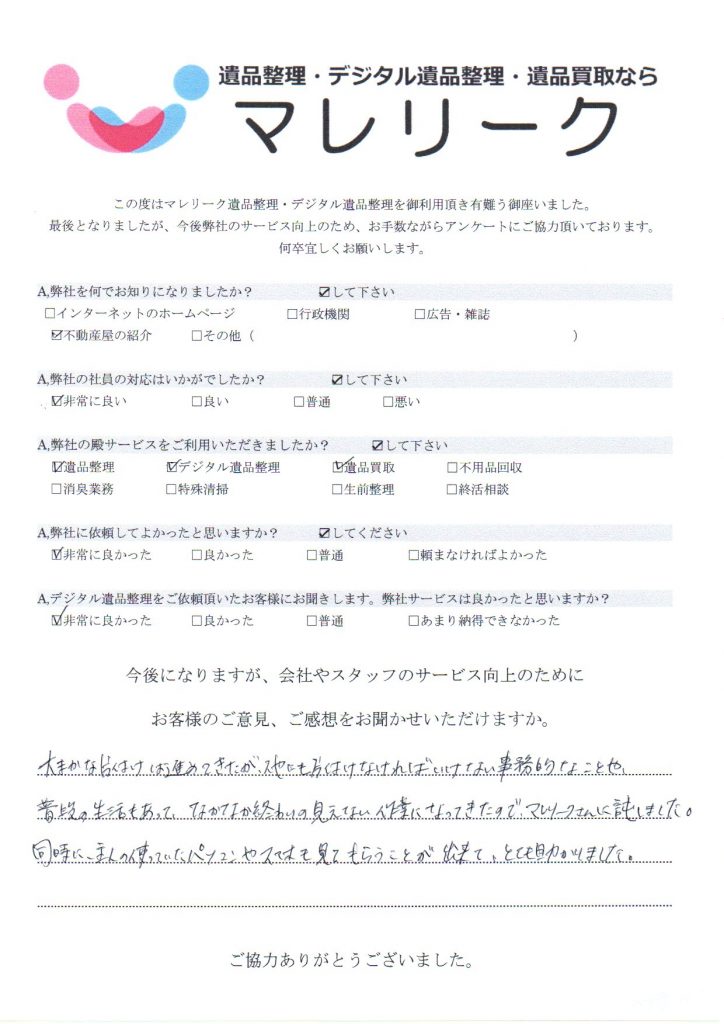 遺品整理・デジタル遺品整理・遺品買取なら
マレリーク
この度はマレリーク遺品整理・デジタル遺品整理を御利用頂き有難う御座いました。
最後となりましたが、今後弊社のサービス向上のため、お手数ながらアンケートにご協力頂いております。
何卒宜しくお願いします。
A,弊社を何でお知りになりましたか? ☑して下さい
☐インターネットのホームページ ☐行政機関 ☐広告・雑誌
☑不動産屋の紹介 ☐その他( )
A,弊社の社員の対応はいかがでしたか? ☑して下さい
☑非常に良い ☐良い ☐普通 ☐悪い
A,弊社の殿サービスをご利用いただきましたか? ☑して下さい
☑遺品整理 ☑デジタル遺品整理 ☑遺品買取 ☐不用品回収
☐消臭業務 ☐特殊清掃 ☐生前整理 ☐終活相談
A,弊社に依頼してよかったと思いますか? ☑してください
☑非常に良かった ☐良かった ☐普通 ☐頼まなければよかった
A,デジタル遺品整理をご依頼頂いたお客様にお聞きします。弊社サービスは良かったと思いますか?
☑非常に良かった ☐良かった ☐普通 ☐あまり納得できなかった
今後になりますが、会社やスタッフのサービス向上のために
お客様のご意見、ご感想をお聞かせいただけますか。
大まかな片付けは進めてきたが、他にも片付けなければいけない事務的なことや、
普段の生活もあって、なかなか終わりの見えない作業になってきたので、マレリークさんに託しました。
同時に、主人の使っていたパソコンやスマホも見てもらうことが出来て、とても助かりました。
ご協力ありがとうございました。